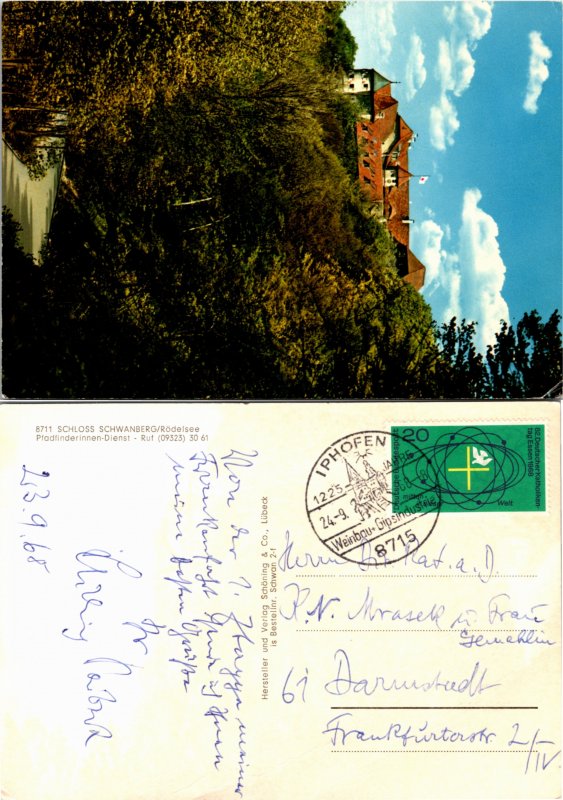 8711 SCHLOSS SCHWANBERG/Rödelsee
Pfadfinderinnen-Dienst - Ruf (09323) 30 61
23.9.68
Von der 1. Etappe meiner
Frankenfahrt sende ich Ihnen
meine besten Grüße
Ihr
Hersteller und Verlag Schöning & Co., Lübeck
is Bestellnr. Schwan 2-f
IPHOFEN
1225
24.-9.
Weinbau + Gipsindustrie
8715
20
Deutsche Bundespost
82. Deutscher Katholiken-
tag Essen 1968
mitten
in
dieser
Welt
Herrn Rat. a. D.
K. N. Mrasek u. Frau
Gemahlin
61 Darmstadt
Frankfurterstr. 2/IV